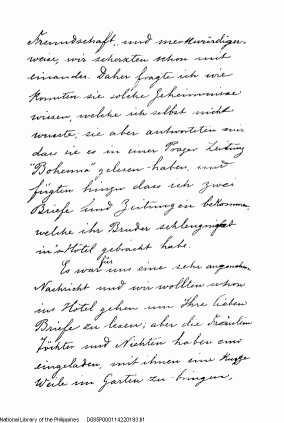 Freundschaft, und merkwürdiger-
weise, wir scherzten schon mit
einander. Daher fragte ich wie
konnten sie solche Geheimnisse
wissen, welche ich selbst nicht
wusste, sie aber antworteten mir
dass sie es in einer Prager Zeitung
"Bohemia" gelesen haben, und
fügten hinzu dass ich zwei
Briefe und Zeitungen bekomme,
welche ihr Bruder schleunigst
in's Hôtel gebracht habe.
Es war für uns eine sehr angenehme
Nachricht und wir wollten schon
ins Hotel gehen um Ihre lieben
Briefe zu lesen; aber die Fräulein
Töchter und Nichten haben uns
eingeladen, mit ihnen eine kurze
Weile im Garten zu bringen,
National Library of the Philippines